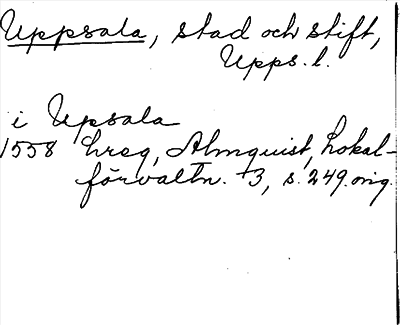 Uppsala, stad och stift,
Upps. l.
i Upsala
1558 hreg, Almquist, Lokal-
förvaltn. 3, s. 249. orig.